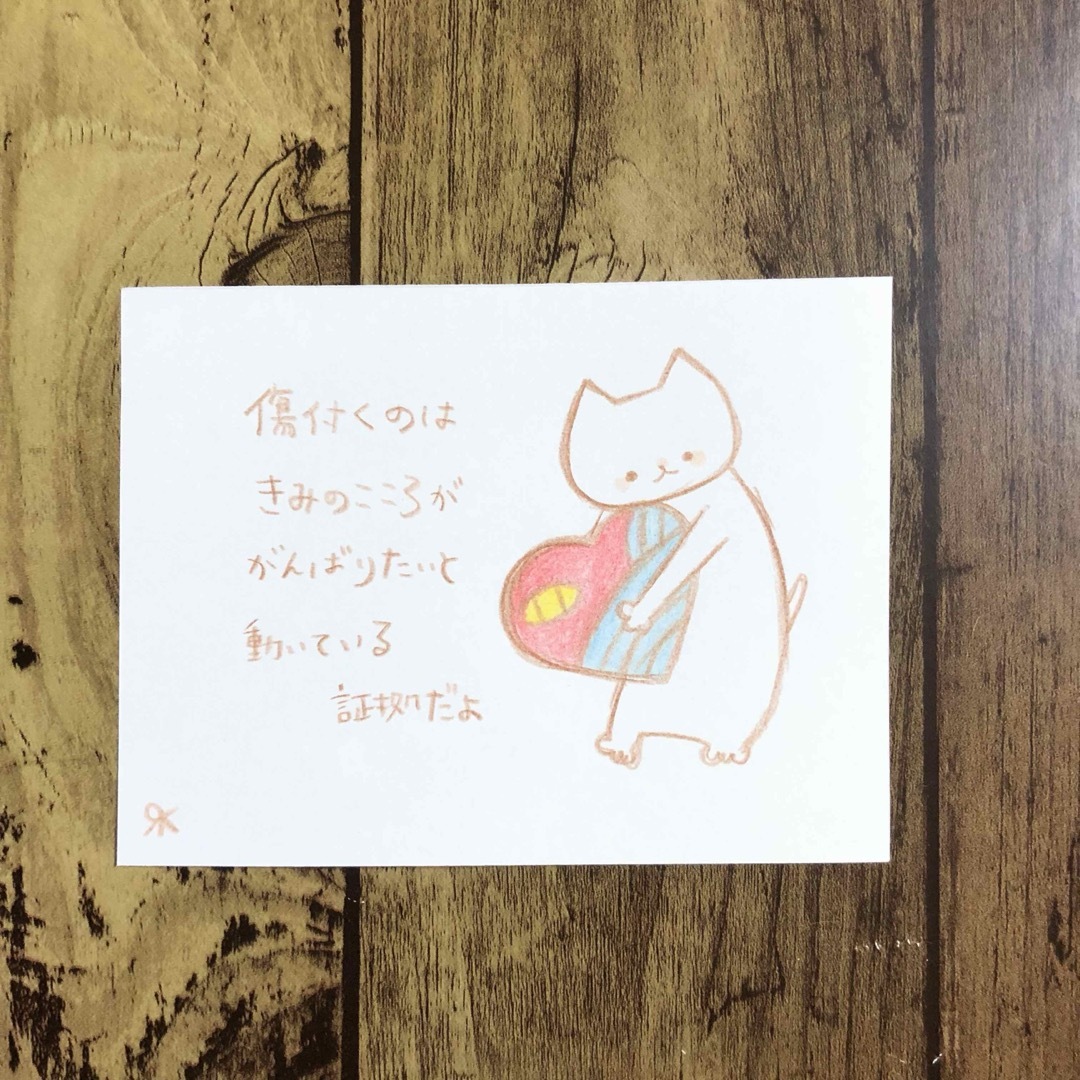 傷付くのは
きみのこころが
がんばりたいと
動いている
証拠だよ